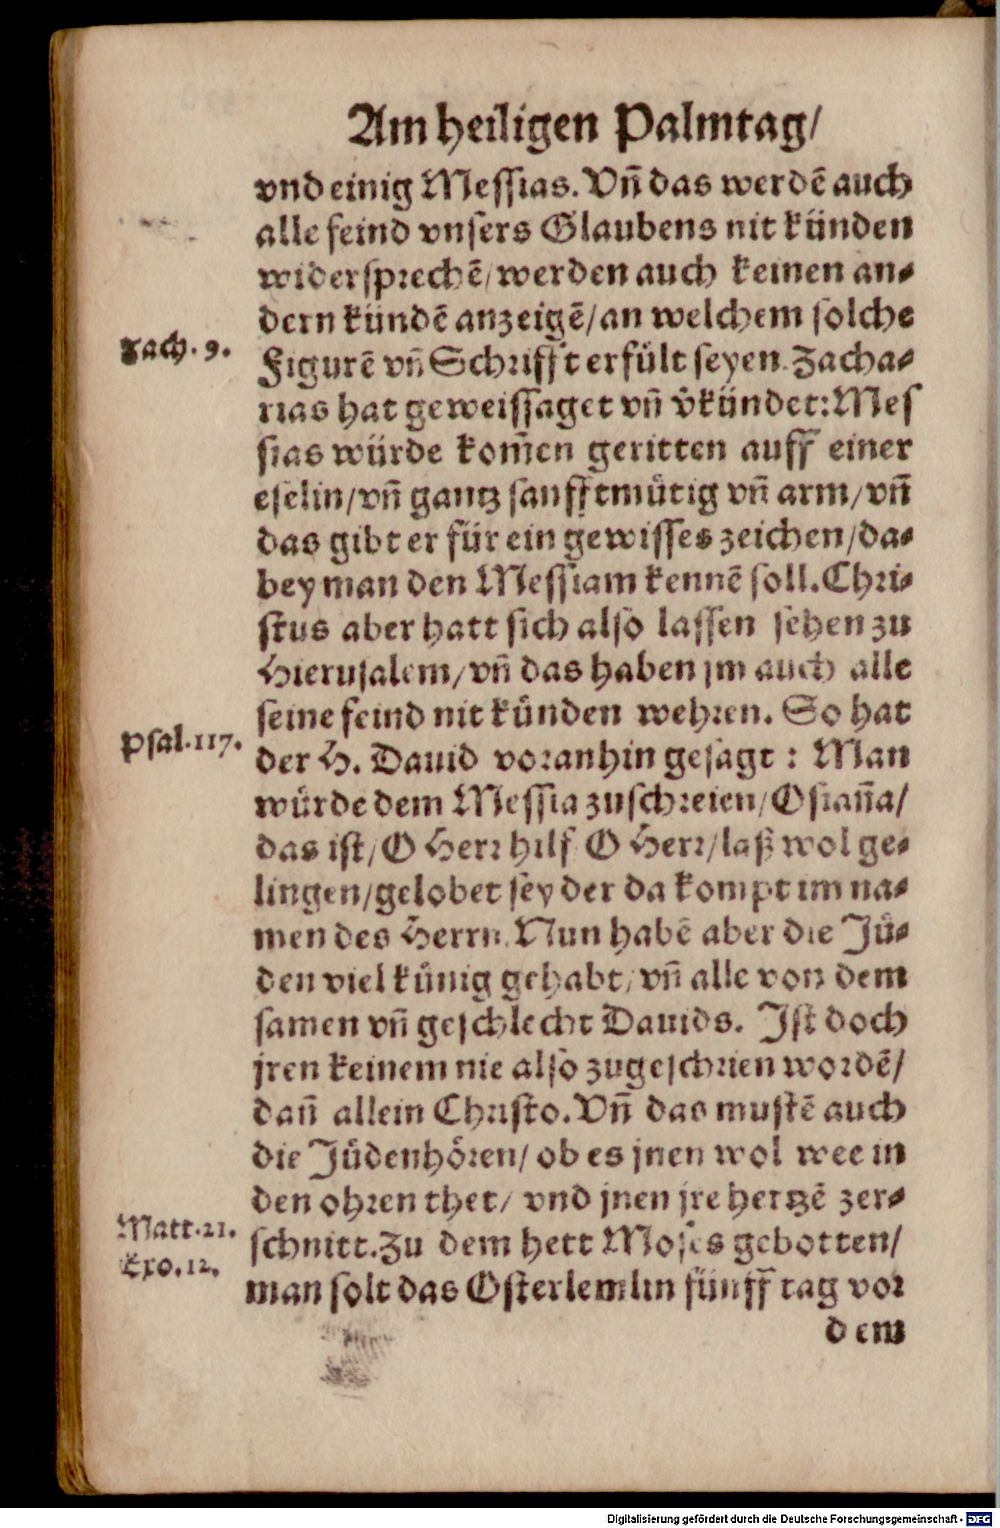 Am heiligen Palmtag/
vnd einig Messias. Vñ das werdẽ auch
alle feind vnsers Glaubens nit künden
widersprechẽ/ werden auch keinen an-
dern kündẽ anzeigẽ/ an welchem solche
Zach. 9.
Figurẽ vñ Schrifft erfült seyen. Zacha-
rias hat geweissaget vñ v̊kündet: Mes
sias würde kom̃en geritten auff einer
eselin/ vñ gantz sanfftmütig vñ arm/ vñ
das gibt er für ein gewisses zeichen/ da-
bey man den Messiam kennẽ soll. Chri-
stus aber hatt sich also lassen sehen zu
Hierusalem/ vñ das haben jm auch alle
seine feind nit künden wehren. So hat
Psal. 117.
der H. Dauid voranhin gesagt: Man
würde dem Messia zuschreien/ Osiaña/
das ist/ O Herr hilf O Herr/ laß wol ge-
lingen/ gelobet sey der da kompt im na-
men des Herrn. Nun habẽ aber die Jü-
den viel künig gehabt/ vñ alle von dem
samen vñ geschlecht Dauids. Ist doch
jren keinem nie also zugeschrien wordẽ/
dañ allein Christo. Vñ das mustẽ auch
die Jüden hören/ ob es jnen wol wee in
den ohren thet/ vnd jnen jre hertzẽ zer-
Matt. 21.
schnitt. Zu dem hett Moses gebotten/
Exo. 12.
man solt das Osterlemlin fünff tag vor
dem
Digitalisierung gefördert durch die Deutsche Forschungsgemeinschaft - DFG